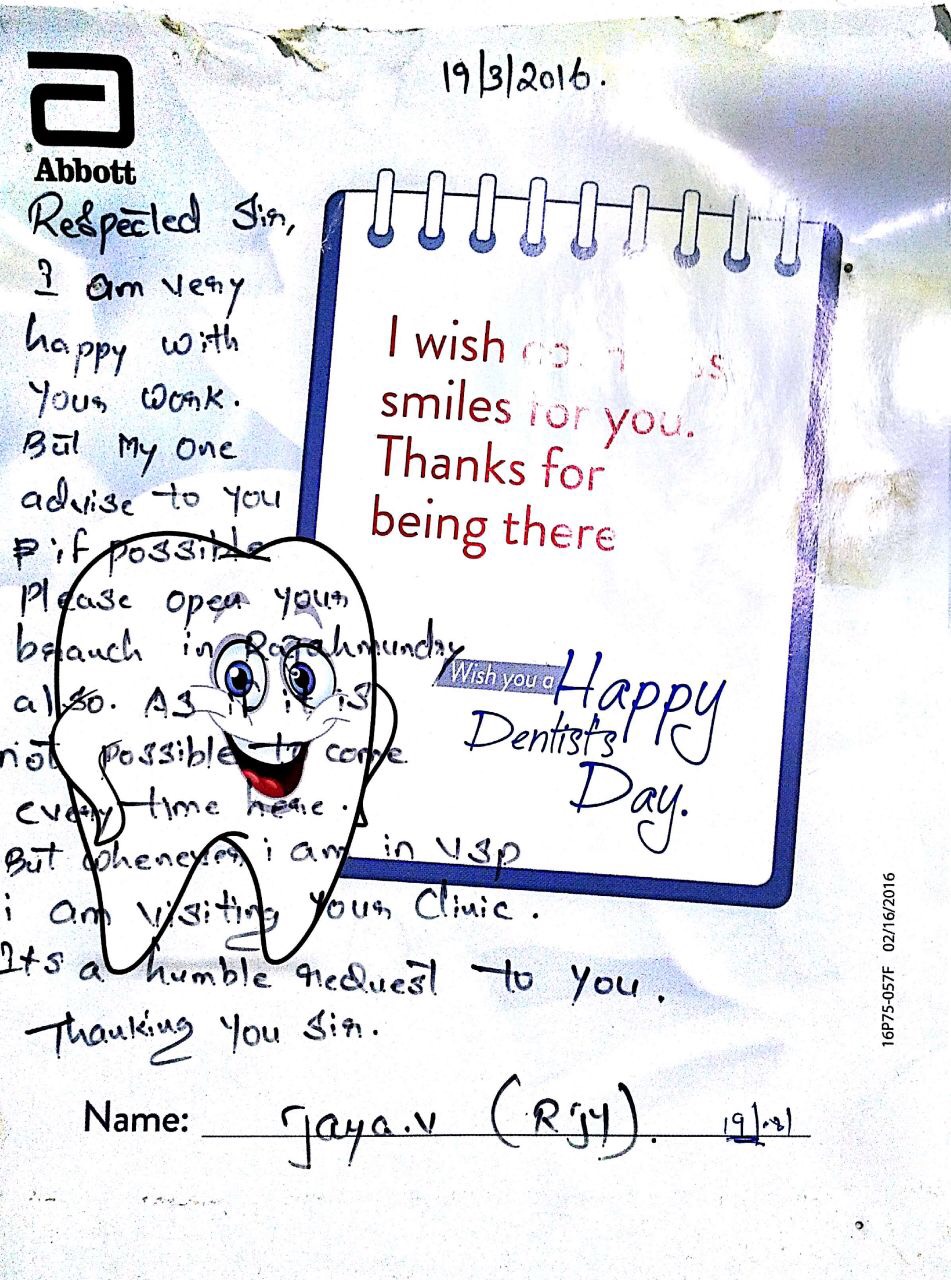 19/3/2016.
Abbott
Respected Sir,
I am very
happy with
your work.
But My one
advise to you
if possible
Please open your
branch in Rajahmundry
also. As if it is
not possible to come
every time here.
But whenever i am in VSP
i am visiting your Clinic.
Its a humble request to you.
Thanking you Sir.
I wish
smiles for you.
Thanks for
being there
Wish you a Happy
Dentist's
Day.
16P75-057F 02/16/2016
Name: Jaya.V (RJY).